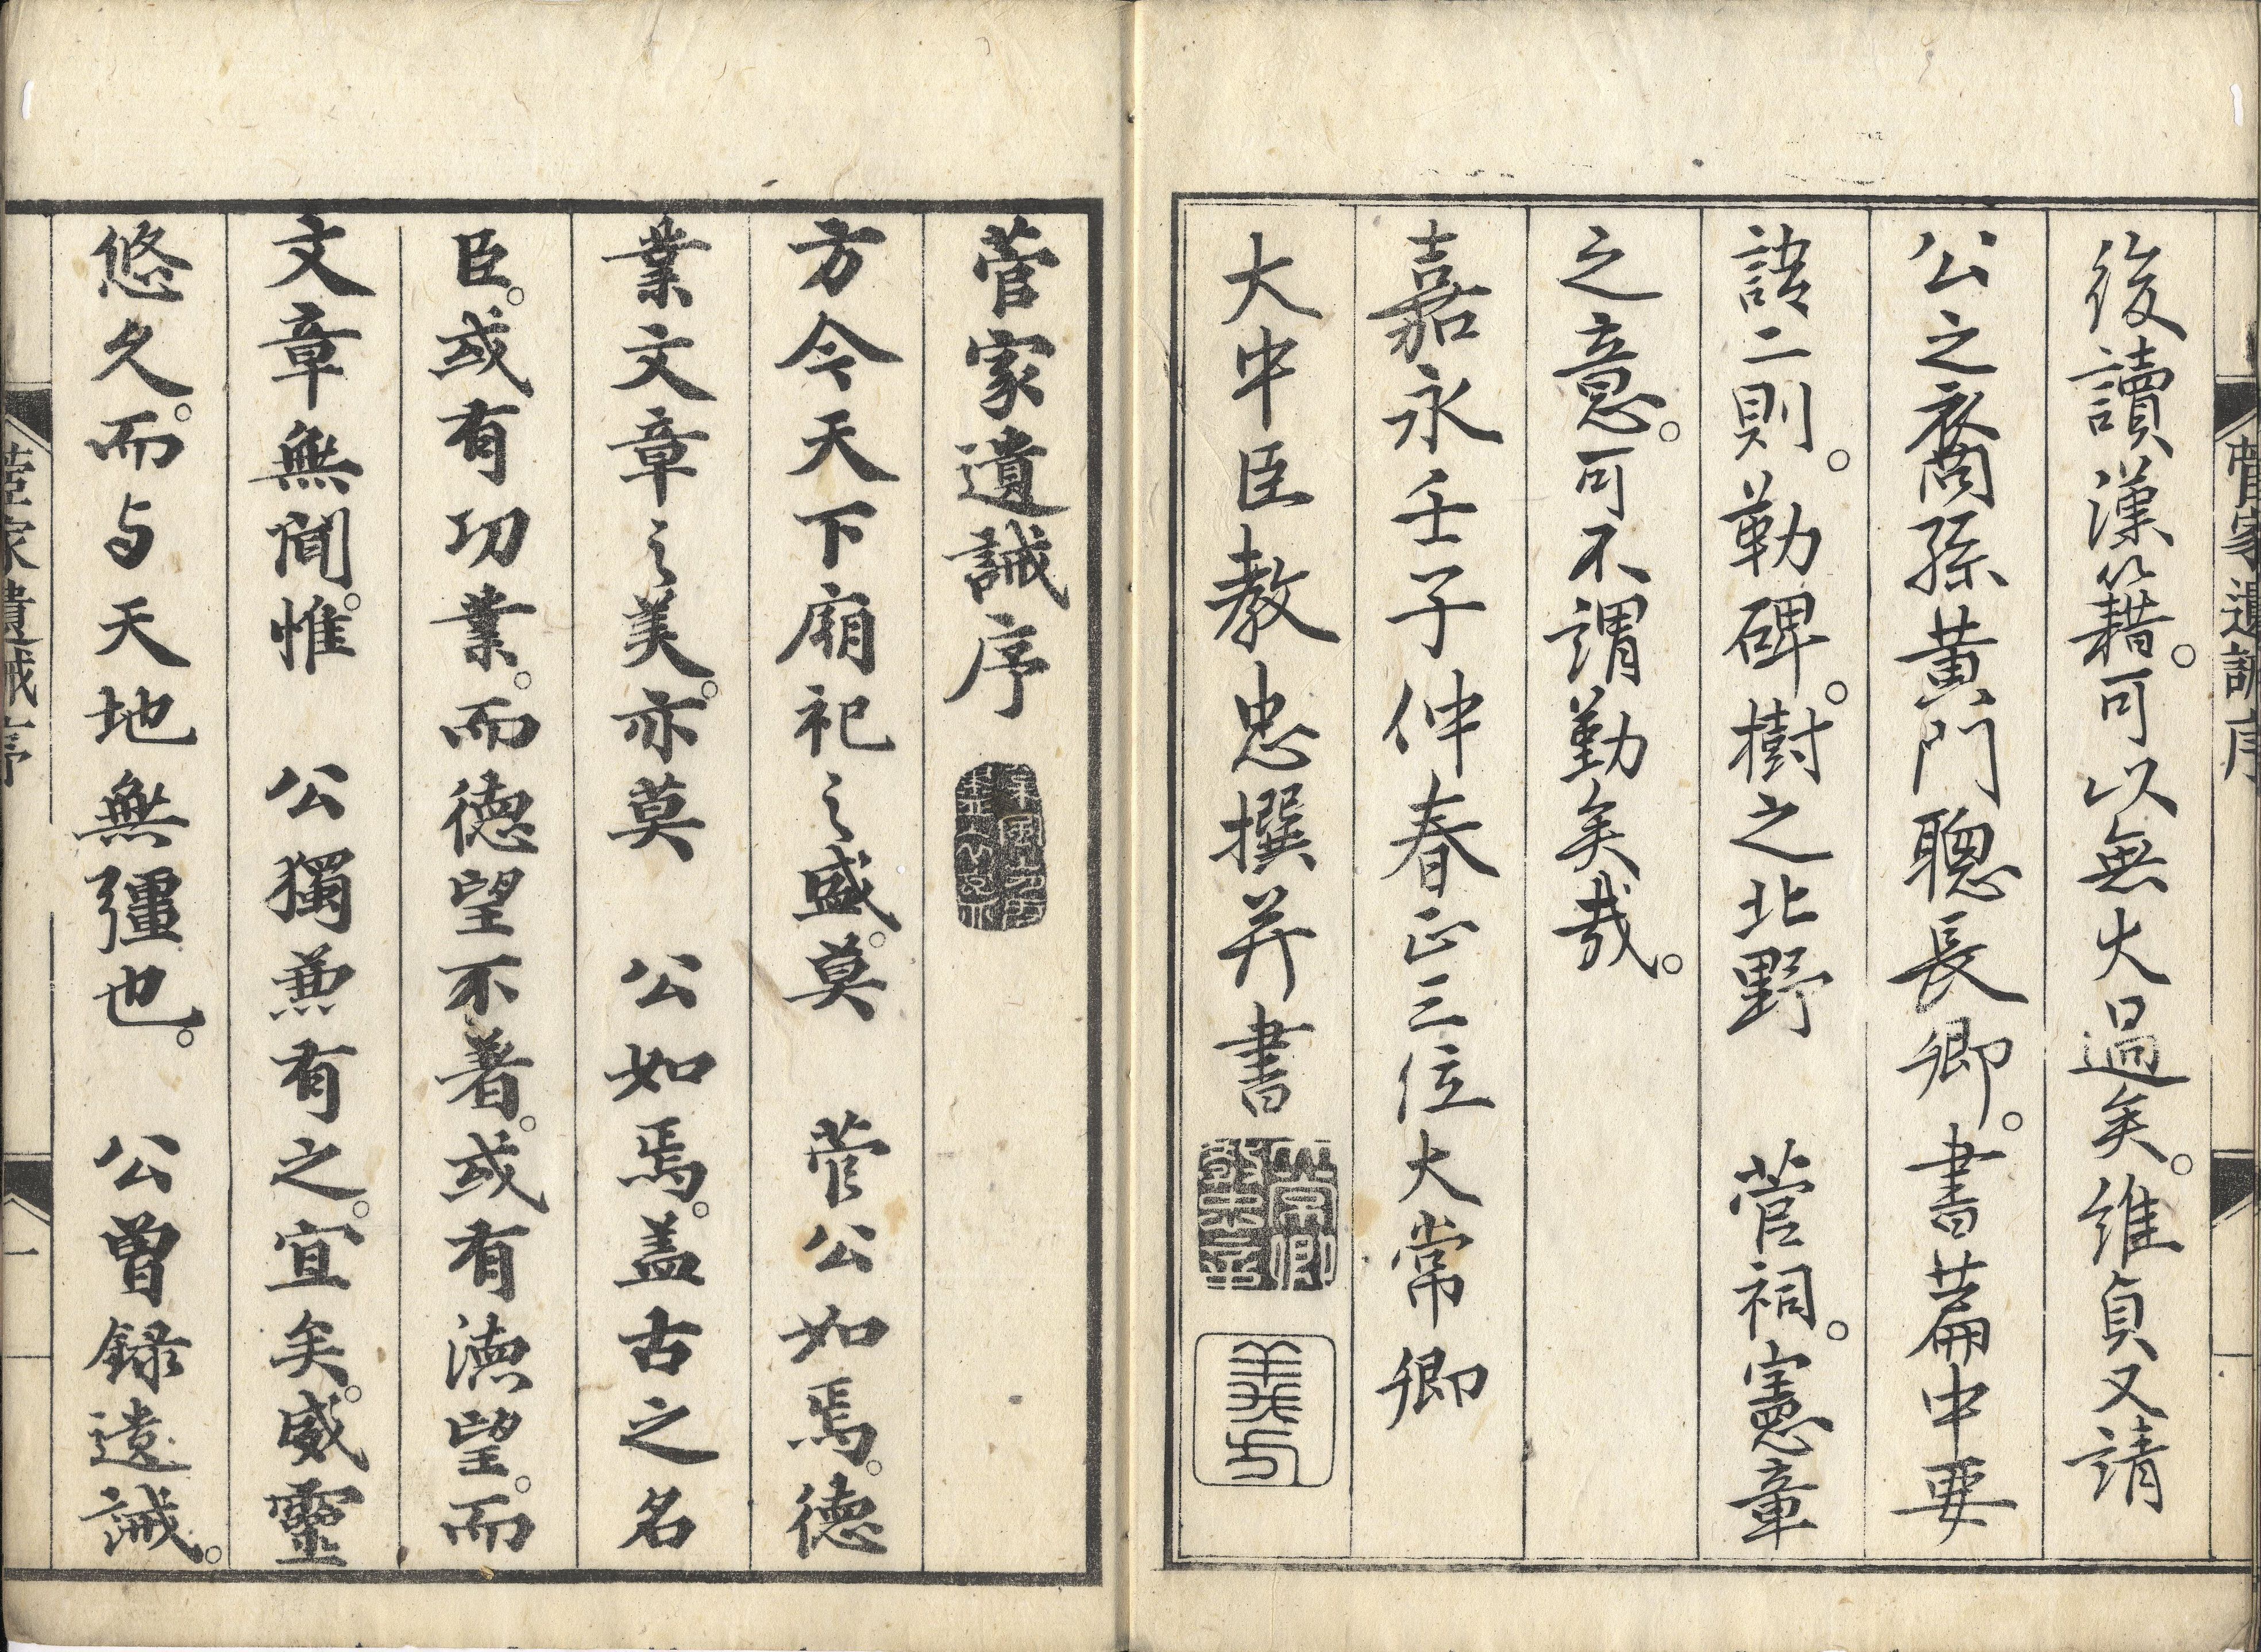 後讀漢籍。可以無大過矣。維貞又請
公之裔孫黄門聰長卿。書篇中要
語二則。勒碑。樹之北野　菅祠。憲章
之意。可不謂勤矣哉。
嘉永壬子仲春正三位大常卿
大中臣教忠撰并書
菅家遺誡序
方今天下廟祀之盛。莫　菅公如焉。德
業文章之美。亦莫　公如焉。蓋古之名
臣。或有功業。而德望不著。或有德望。而
文章無聞。惟　公獨兼有之。宜矣。威靈
悠久。而与天地無彊也。　公曽錄遺誡。
菅家遺誡序
一